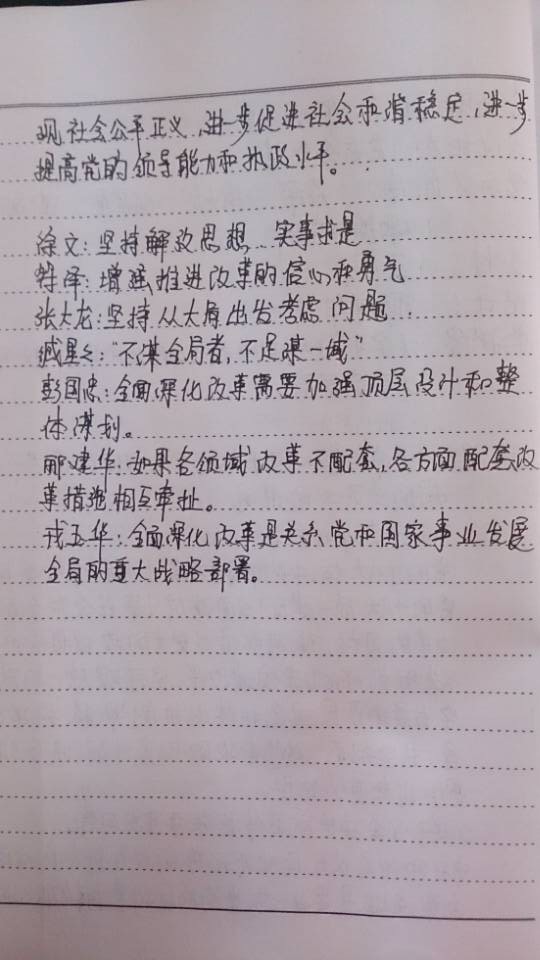 现社会公平正义,进一步促进社会和谐稳定,进一步
提高党的领导能力和执政水平。
徐文:坚持解放思想 实事求是
符泽:增强推进改革的信心和勇气
张大龙:坚持从大局出发考虑问题.
臧星文:“不谋全局者,不足谋一域”
彭国忠:全面深化改革需要加强顶层设计和整
体谋划。
邴建华:如果各领域改革不配套,各方面配套改
革措施相互牵扯。
戎玉华:全面深化改革是关系党和国家事业发展
全局的重大战略部署。